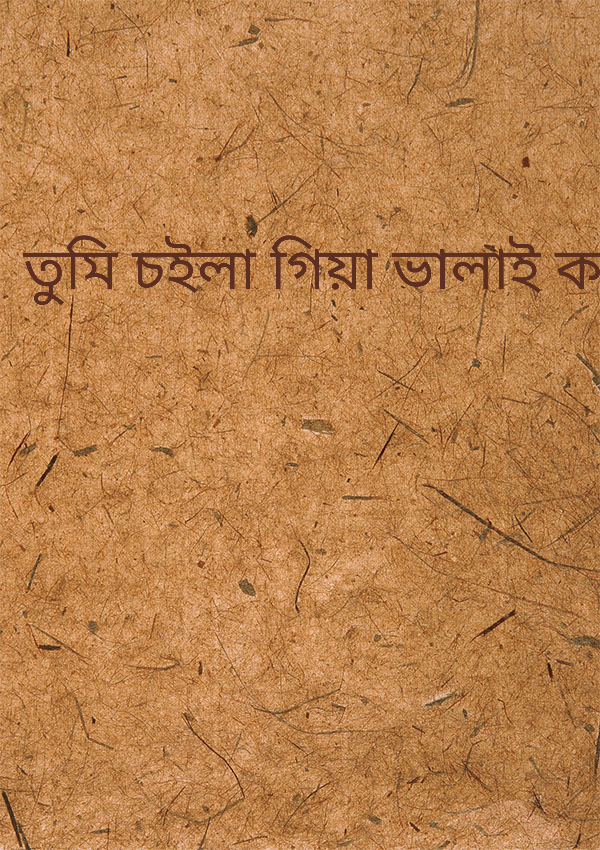 তুমি চইলা গিয়া ভালাই ক